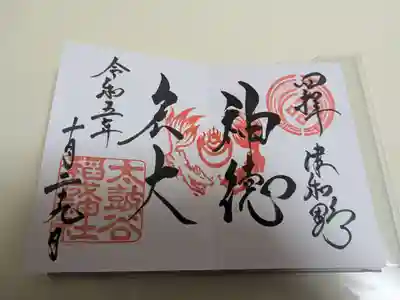 津和野
神徳
大
令和五年
十月二九日
太皷谷
稲成神社